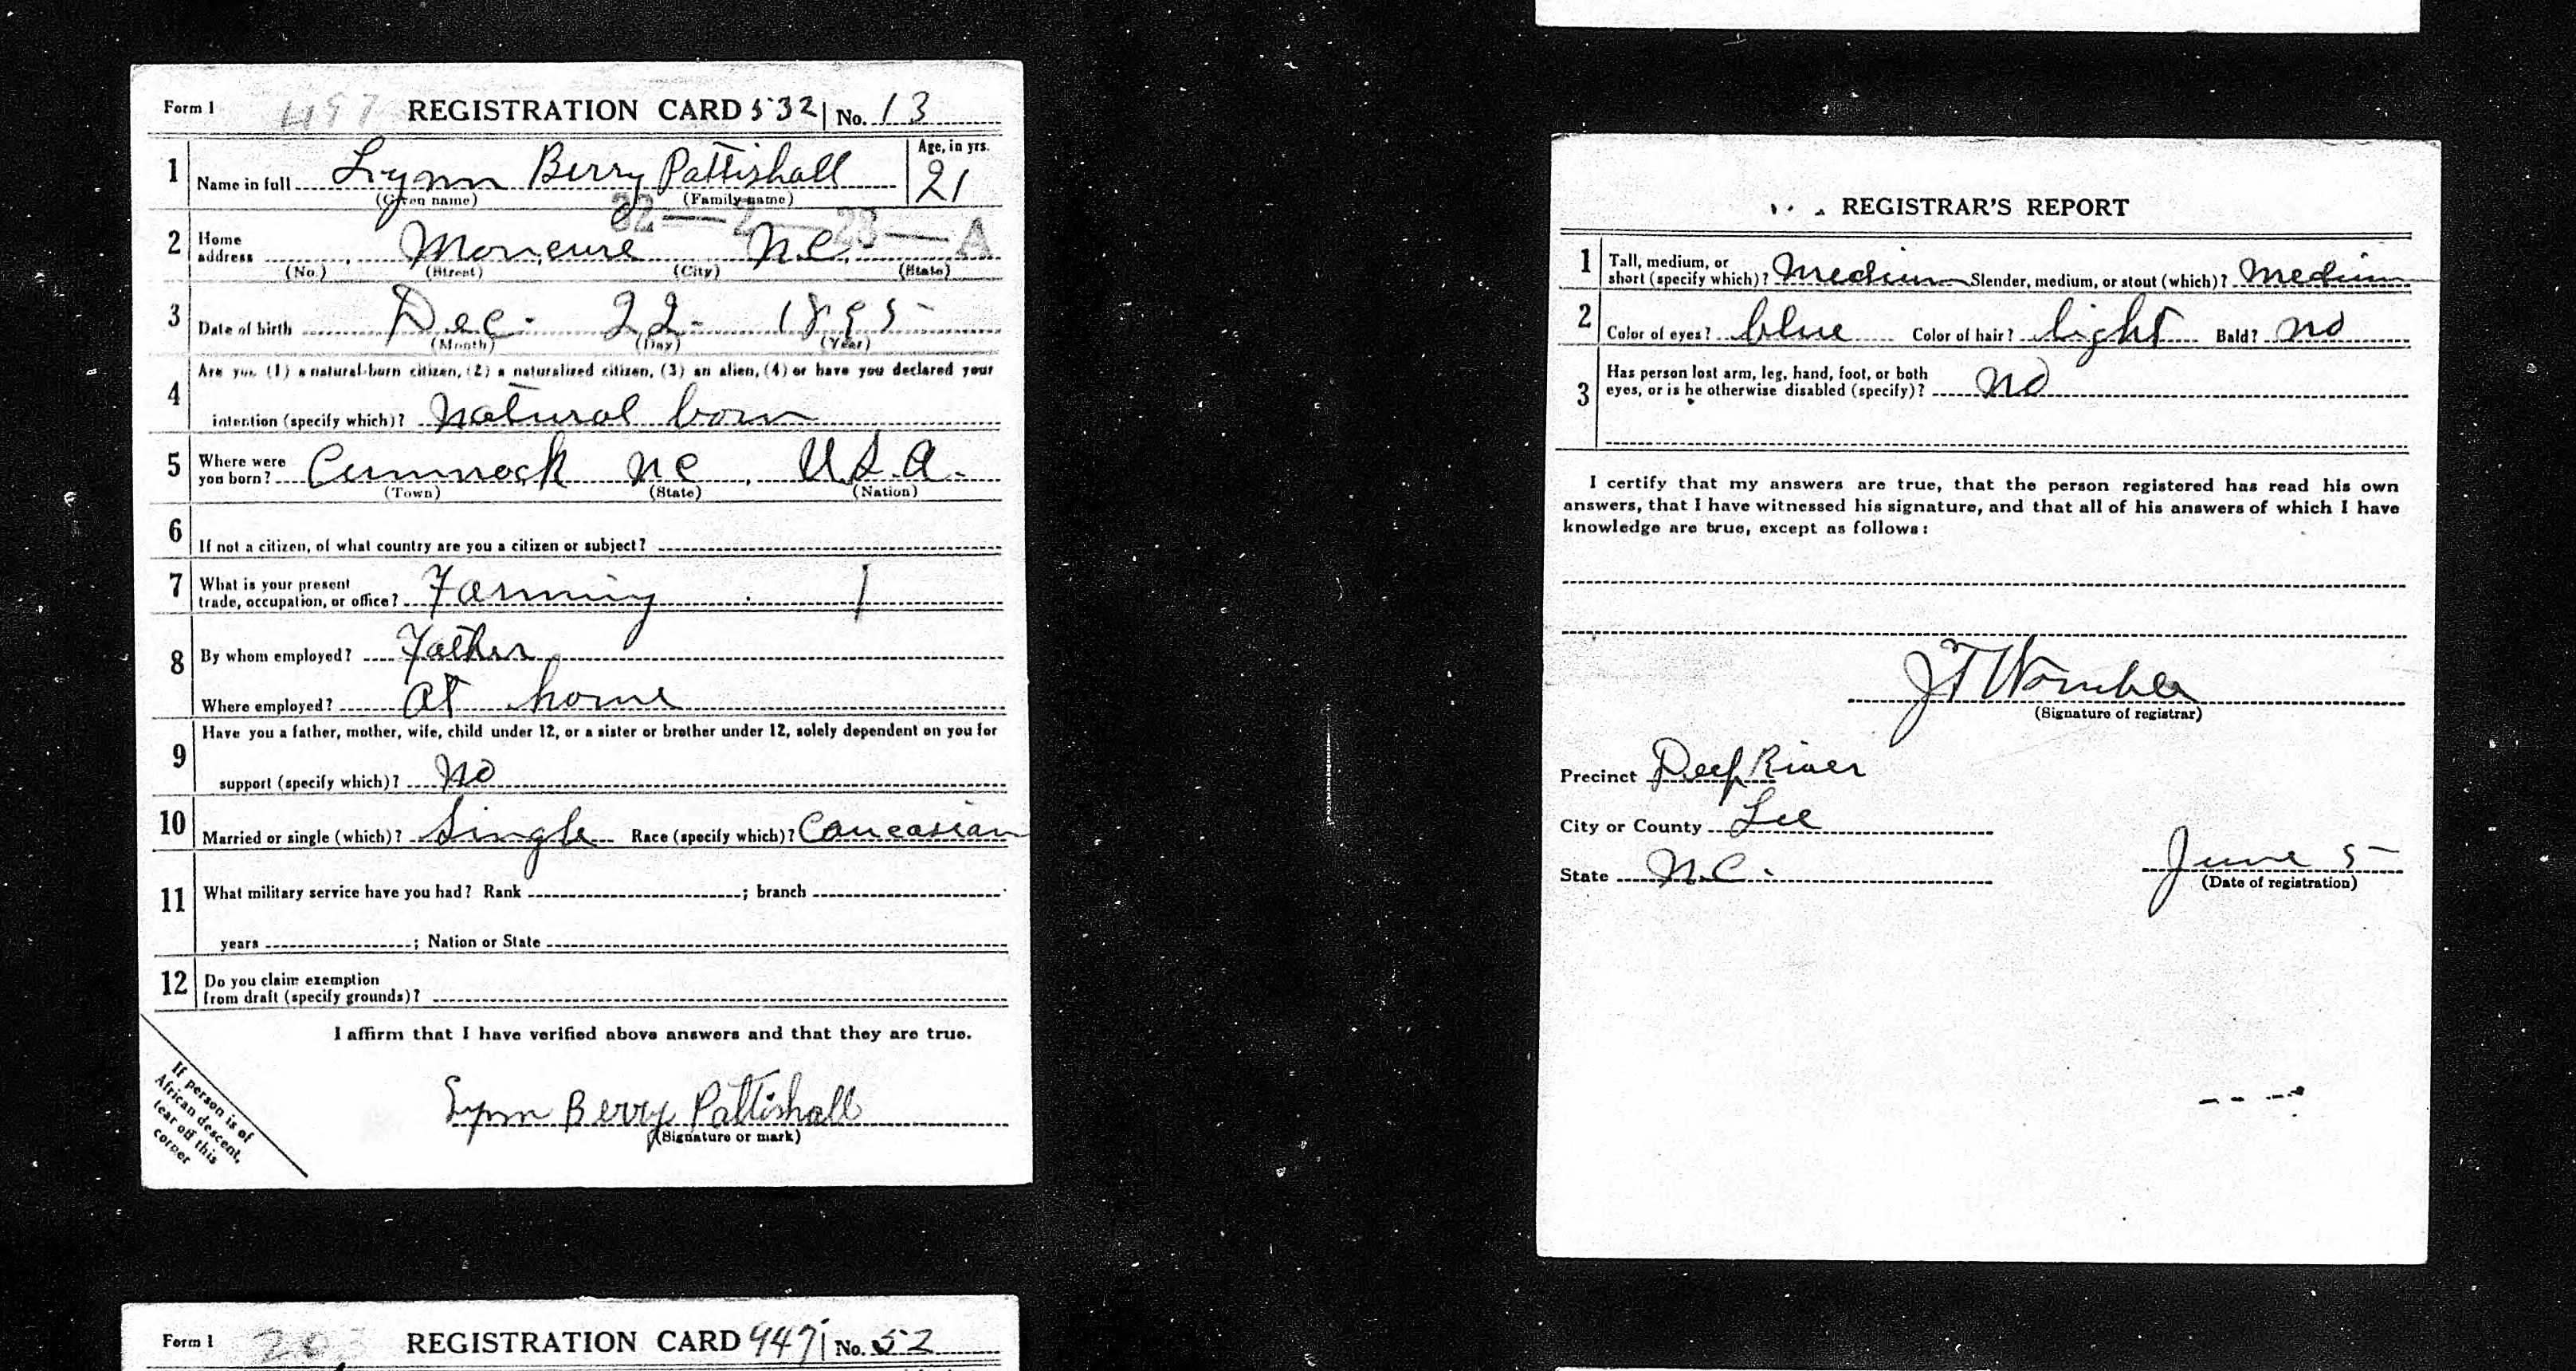 Form 1 497 REGISTRATION CARD 532 No. 13
1 Name in full Lynn Berry Pattishall Age, in yrs. 21
(Given name) (Family name)
32 — 2 — 23 — A
2 Home address Moncure N.C.
(No.) (Street) (City) (State)
3 Date of birth Dec. 22 - 1895
(Month) (Day) (Year)
4 Are you (1) a natural-born citizen, (2) a naturalized citizen, (3) an alien, (4) or have you declared your
intention (specify which)? natural born
5 Where were you born? Cumnock NC, U.S.A.
(Town) (State) (Nation)
6 If not a citizen, of what country are you a citizen or subject?
7 What is your present trade, occupation, or office? Farming
8 By whom employed? Father
Where employed? at home
9 Have you a father, mother, wife, child under 12, or a sister or brother under 12, solely dependent on you for
support (specify which)? No
10 Married or single (which)? Single Race (specify which)? Caucasian
11 What military service have you had? Rank ; branch
years ; Nation or State
12 Do you claim exemption
from draft (specify grounds)?
I affirm that I have verified above answers and that they are true.
If person is of
African descent,
tear off this
corner
Lynn Berry Pattishall
(Signature or mark)
Form 1 203 REGISTRATION CARD 947 No. 52
REGISTRAR'S REPORT
1 Tall, medium, or
short (specify which)? Medium Slender, medium, or stout (which)? Medium
2 Color of eyes? blue Color of hair? light Bald? no
3 Has person lost arm, leg, hand, foot, or both
eyes, or is he otherwise disabled (specify)? no
I certify that my answers are true, that the person registered has read his own
answers, that I have witnessed his signature, and that all of his answers of which I have
knowledge are true, except as follows:
JT Womble
(Signature of registrar)
Precinct Deep River
City or County Lee
State N.C. June 5
(Date of registration)